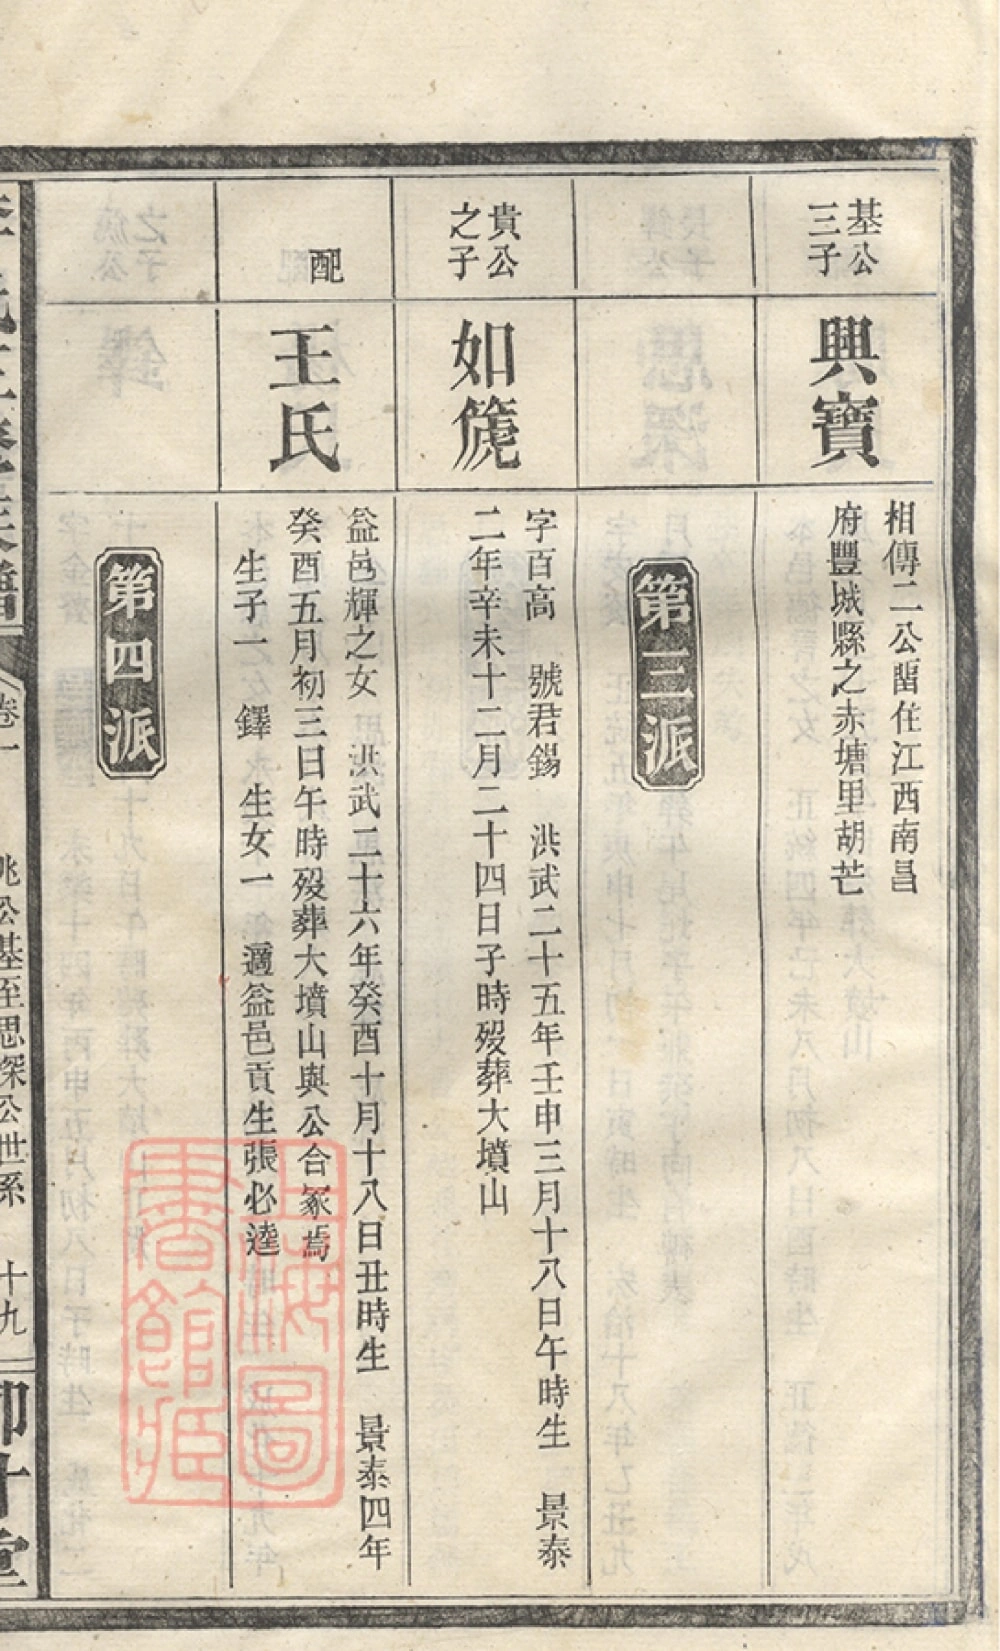 基公
三子
興寶
相傳二公畱住江西南昌
府豐城縣之赤塘里胡芒
第三派
貴公
之子
如篪
字百高　號君錫　洪武二十五年壬申三月十八日午時生　景泰
二年辛未十二月二十四日子時歿葬大墳山
配
王氏
益邑輝之女　洪武二十六年癸酉十月十八日丑時生　景泰四年
癸酉五月初三日午時歿葬大墳山與公合冢焉
生子一　鐸　生女一　適益邑貢生張必達
第四派
卷一
兆公基至思深公世系
十九
上海圖
書館藏